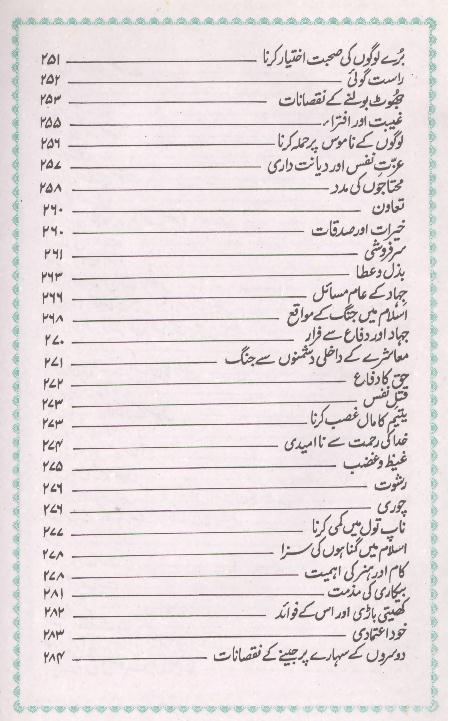 بُرے لوگوں کی صحبت اختیار کرنا ۲۵۱
راست گوئی ۲۵۲
جھُوٹ بولنے کے نقصانات ۲۵۳
غیبت اور افتراء ۲۵۵
لوگوں کے ناموس پر حملہ کرنا ۲۵۶
عزّتِ نفس اور دیانت داری ۲۵۷
محتاجوں کی مدد ۲۵۸
تعاون ۲۶۰
خیرات اور صدقات ۲۶۰
سرفروشی ۲۶۱
بذل و عطا ۲۶۳
جہاد کے عام مسائل ۲۶۶
اسلام میں جنگ کے مواقع ۲۶۸
جہاد اور دفاع سے فرار ۲۷۰
معاشرے کے داخلی دشمنوں سے جنگ ۲۷۱
حق کا دفاع ۲۷۲
قتلِ نفس ۲۷۳
یتیم کا مال غصب کرنا ۲۷۳
خدا کی رحمت سے ناامیدی ۲۷۴
غیظ و غضب ۲۷۵
رشوت ۲۷۶
چوری ۲۷۶
ناپ تول میں کمی کرنا ۲۷۷
اسلام میں گناہوں کی سزا ۲۷۸
کام اور ہنر کی اہمیت ۲۷۸
بیکاری کی مذمت ۲۸۱
کھیتی باڑی اور اس کے فوائد ۲۸۲
خود اعتمادی ۲۸۳
دوسروں کے سہارے پر جینے کے نقصانات ۲۸۴